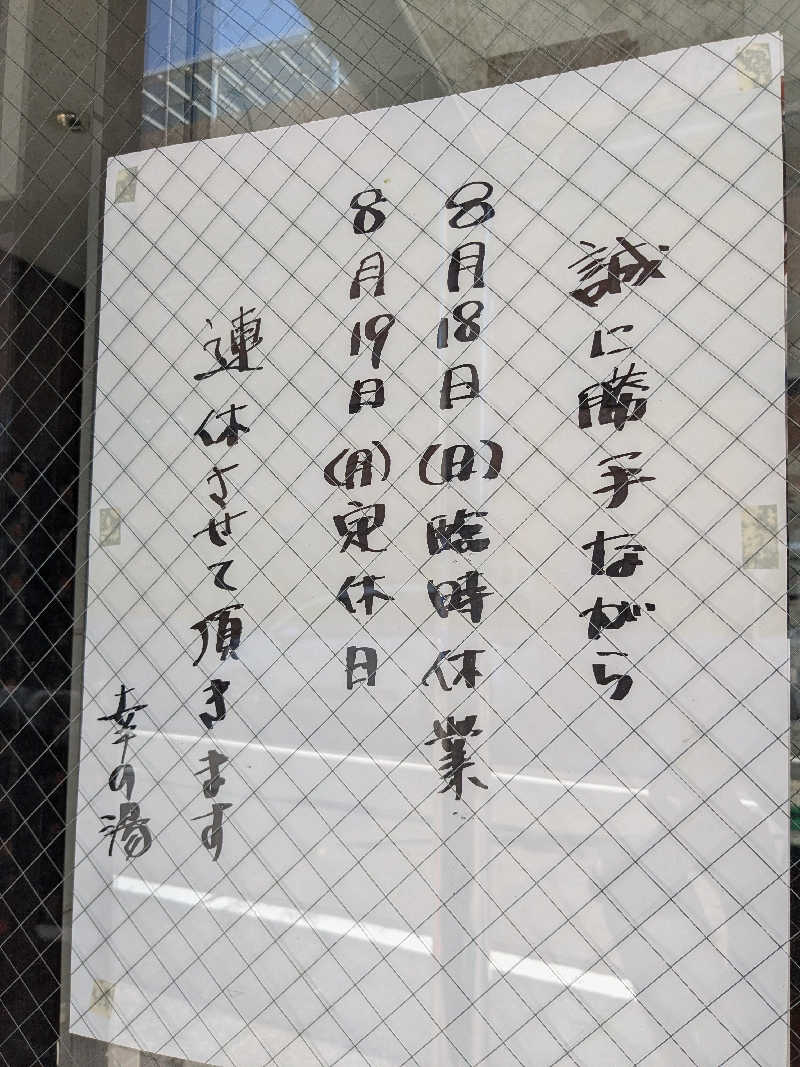 誠に勝手ながら
8月18日(日)臨時休業
8月19日(月)定休日
連休させて頂きます
幸の湯